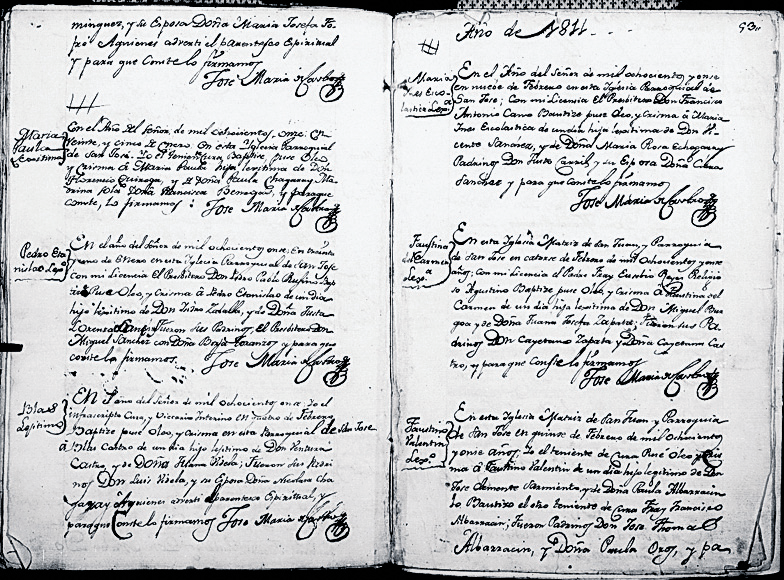 minguez, y su Esposa Doña Maria Josefa
Aquienes adverti el parentesco Espiritual
y para que Conste lo firmamos
Jose Maria de Castro
Maria
Paula
Lexitima
En el Año del Señor, de mil ochocientos, onze, en
veinte, y cinco de Enero. En esta Iglesia Parroquial
de San José. Yo el Teniente Cura Baptize, puse Oleo,
y Crisma á Maria Paula hija lexitima de Don
Florencio Quiroga, y de Doña Paula
drina sola Doña Francisca y paraque
conste, lo firmamos: Jose Maria de Castro
Pedro Esta
nislao Lexo
En el año del Señor de mil ochocientos onse: En treinta
y uno de Enero en esta Iglesia Parroquial de San Jose
con mi Licencia El Presbitero Don Pablo Rufino Bap
Puse Oleo, y Crisma á Pedro Estanislao de un dia
hijo lexitimo de Don Isidro y de Doña Justa
Fueron sus Padrinos, El Presbitero Don
Miguel Sanchez con Doña Borja y para que
conste lo firmamos. Jose Maria de Castro
Blas
Legitimo
En el año del Señor de mil ochocientos onse: Yo el
infrascripto Cura, y Vicario Interino en quatro de Febrero
Baptize puse Oleo, y Crisma en esta Parroquial de San Jose
á Blas Castro de un dia hijo lexitimo de Don Ventura
Castro, y de Doña Elena Videla; Fueron sus Padri
nos Don Luis Videla, y su Esposa Doña Nicolasa Cha
Aquienes adverti el parentesco Espiritual, y
paraque Conste lo firmamos Jose Maria de Castro
Año de 1811.
93
Maria
Ines Esco
lastica Lexa
En el Año del Señor de mil ochociento, y onse
en nueve de Febrero en esta Iglesia Parroquial de
San Jose; Con mi Licencia El Presbitero Don Francisco
Antonio Cano Bautizo puso Oleo, y Crisma á Maria
Ines Escolastica de un dia hija lexitima de Don Vi
cente Sanches, y de Doña Maria Rosa Echegaray
Padrinos Don Justo y su Esposa Doña
Sanchez y para que Conste lo firmamos
Jose Maria de Castro
Faustina
del Carmen
Lexa
En esta Iglesia Matriz de San Juan, y Parroquia
de San Jose en catorse de Febrero de mil ochociento, y onse
años; con mi Licencia el Padre Fray Eusebio Religio
so Agustino Baptize puse Oleo, y Crisma á Faustina del
Carmen de un dia hija lexitima de Don Miguel Bur
goa y de Doña Juana Josefa Zapata; Fueron sus Pa
drinos Don Cayetano Zapata y Doña Cayetana Cas
tro, y para que Conste lo firmamos
Jose Maria de Castro
Faustino
Valentin
Lexo
En esta Iglesia Matriz de San Juan y Parroquia
de San Jose en quinse de Febrero de mil ochociento
y onse años. Yo el teniente de Cura Puse Oleo y Cris
ma á Faustino Valentin de un dia hijo legitimo de Don
Jose Clemente Sarmiento, y de Doña Paula Albarracin
lo Bautizo el otro teniente de Cura Fray Francisco
Albarracin; Fueron Padrinos Don Jose Thomas
Albarracin, y Doña Paula Oro, y pa